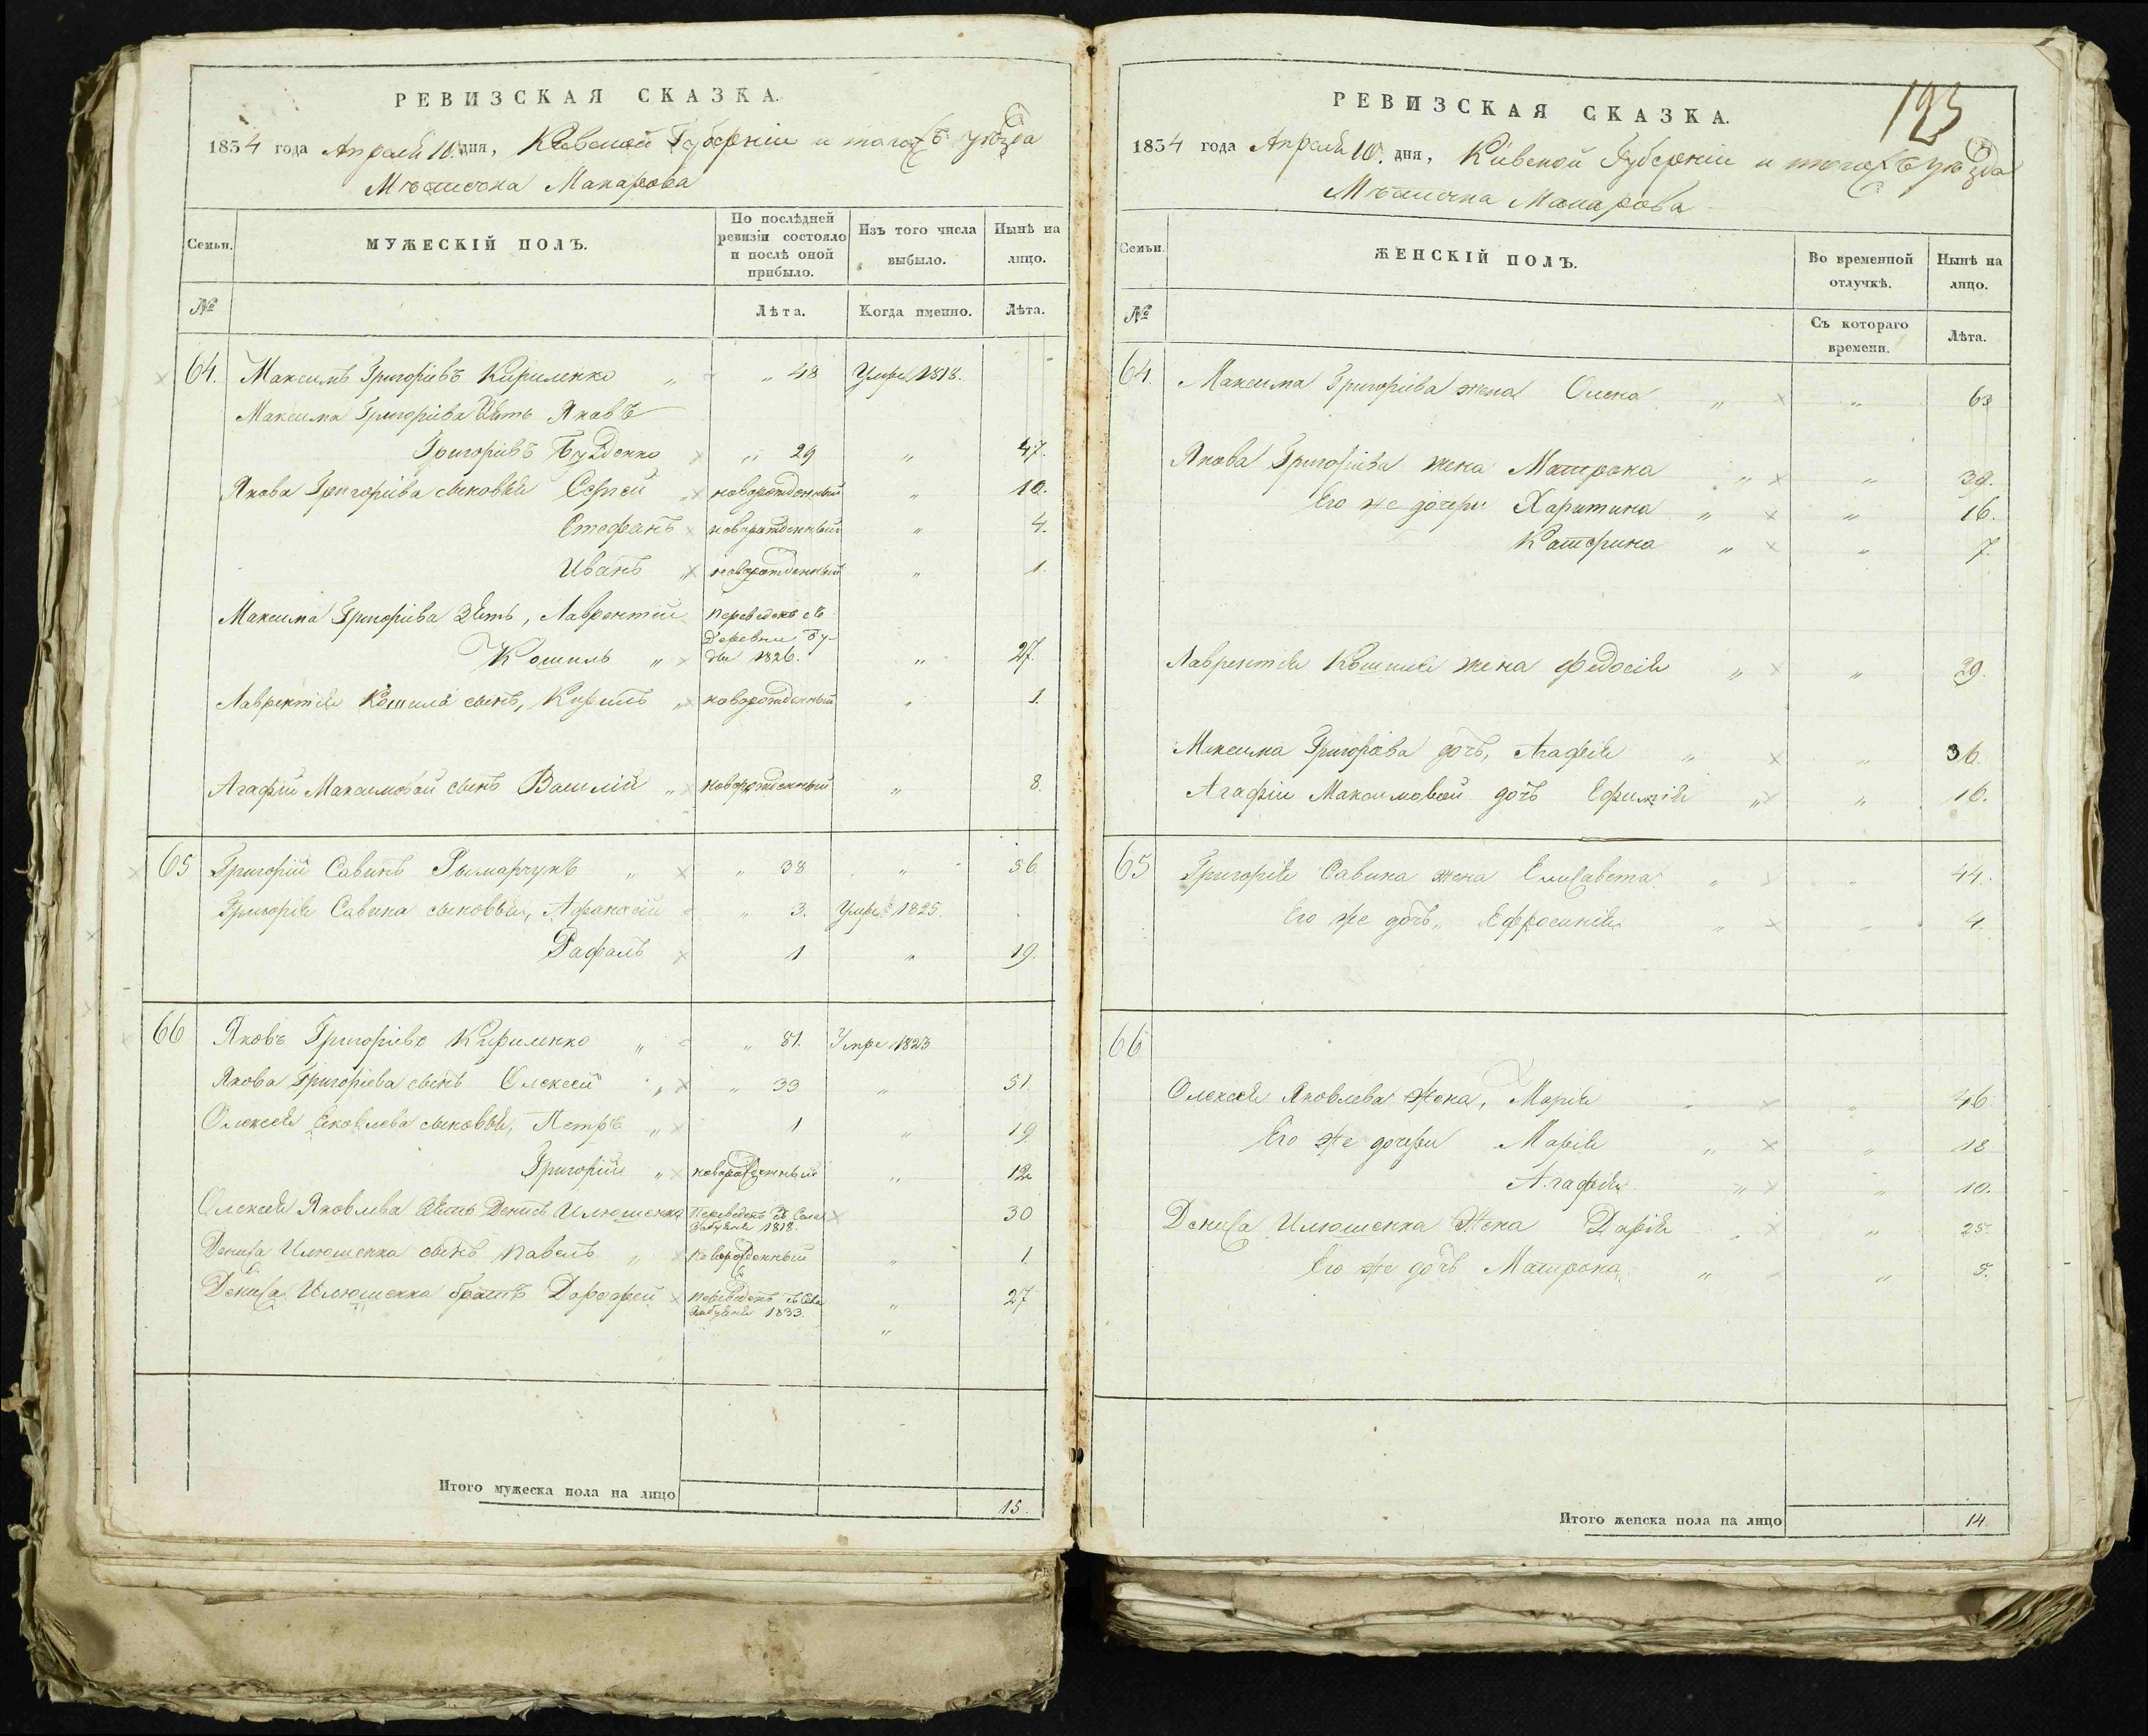 РЕВИЗСКАЯ СКАЗКА.
1834 года Апреля 10. дня, Кіевской Губерніи и тогожъ уѣзда
Мѣстечка Макарова
Семьи.
МУЖЕСКІЙ ПОЛЪ.
По послѣдней ревизіи состояло и послѣ оной прибыло.
Изъ того числа выбыло.
Нынѣ на лицо.
№
Лѣта.
Когда именно.
Лѣта.
64. Максимъ Григоріевъ Кириленко „ „ 48 Умре 1818.
Максима Григоріева Зять Яковъ
Григоріевъ Бузденко „ 29 „ 47.
Якова Григоріева сыновья Сергей „ новорожденный „ 10.
Стефанъ новорожденный „ 4.
Иванъ „ новорожденный „ 1.
Максима Григоріева Зять, Лаврентій переведенъ съ
Деревни Бу-
Кошиль „ ды 1826. „ 27.
Лаврентія Кошиля сынъ, Кирилъ „ новорожденный „ 1.
Агафіи Максимовой сынъ Василій „ новорожденный „ 8.
65 Григорій Савинъ Рымарчукъ „ „ 38 „ 56.
Григорія Савина сыновья, Афанасій „ 3. Умре 1825.
Рафалъ 1 „ 19.
66 Яковъ Григоріевъ Кириленко „ „ 51. Умре 1823
Якова Григоріева сынъ Олексей „ „ 33 „ 51.
Олексея Яковлева сыновья, Петръ „ 1 „ 19
Григорій „ новорожденный „ 12
Олексея Яковлева Зять Денисъ Илюшенко Переведенъ съ Села
1818. 30
Дениса Илюшенка сынъ Павелъ „ новорожденный „ 1.
Дениса Илюшенка братъ Дорофей переведенъ съ Села
1833. „ 27
„
Итого мужеска пола на лицо 15.
193
РЕВИЗСКАЯ СКАЗКА.
1834 года Апреля 10. дня, Кіевской Губерніи и тогожъ уѣзда
Мѣстечка Макарова
Семьи.
ЖЕНСКІЙ ПОЛЪ.
Во временной отлучкѣ.
Нынѣ на лицо.
№
Съ котораго времени.
Лѣта.
64. Максима Григоріева жена Олена „ „ 63
Якова Григоріева жена Матрона „ „ 39.
Его же дочери Харитина „ „ 16.
Катерина „ „ 7.
Лаврентія Кошиля жена Федосія „ „ 29.
Максима Григоріева дочъ, Агафія „ „ 36.
Агафіи Максимовой дочъ Ефимія „ „ 16.
65 Григорія Савина жена Елисавета „ „ 44.
Его же дочъ „ Ефросинія „ „ 4.
66
Олексея Яковлева Жена, Марія „ 46
Его же дочери Марія „ „ 18
Агафія „ „ 10.
Дениса Илюшенка Жена Дарія „ „ 25.
Его же дочъ Матрона „ „ 5.
Итого женска пола на лицо 14.